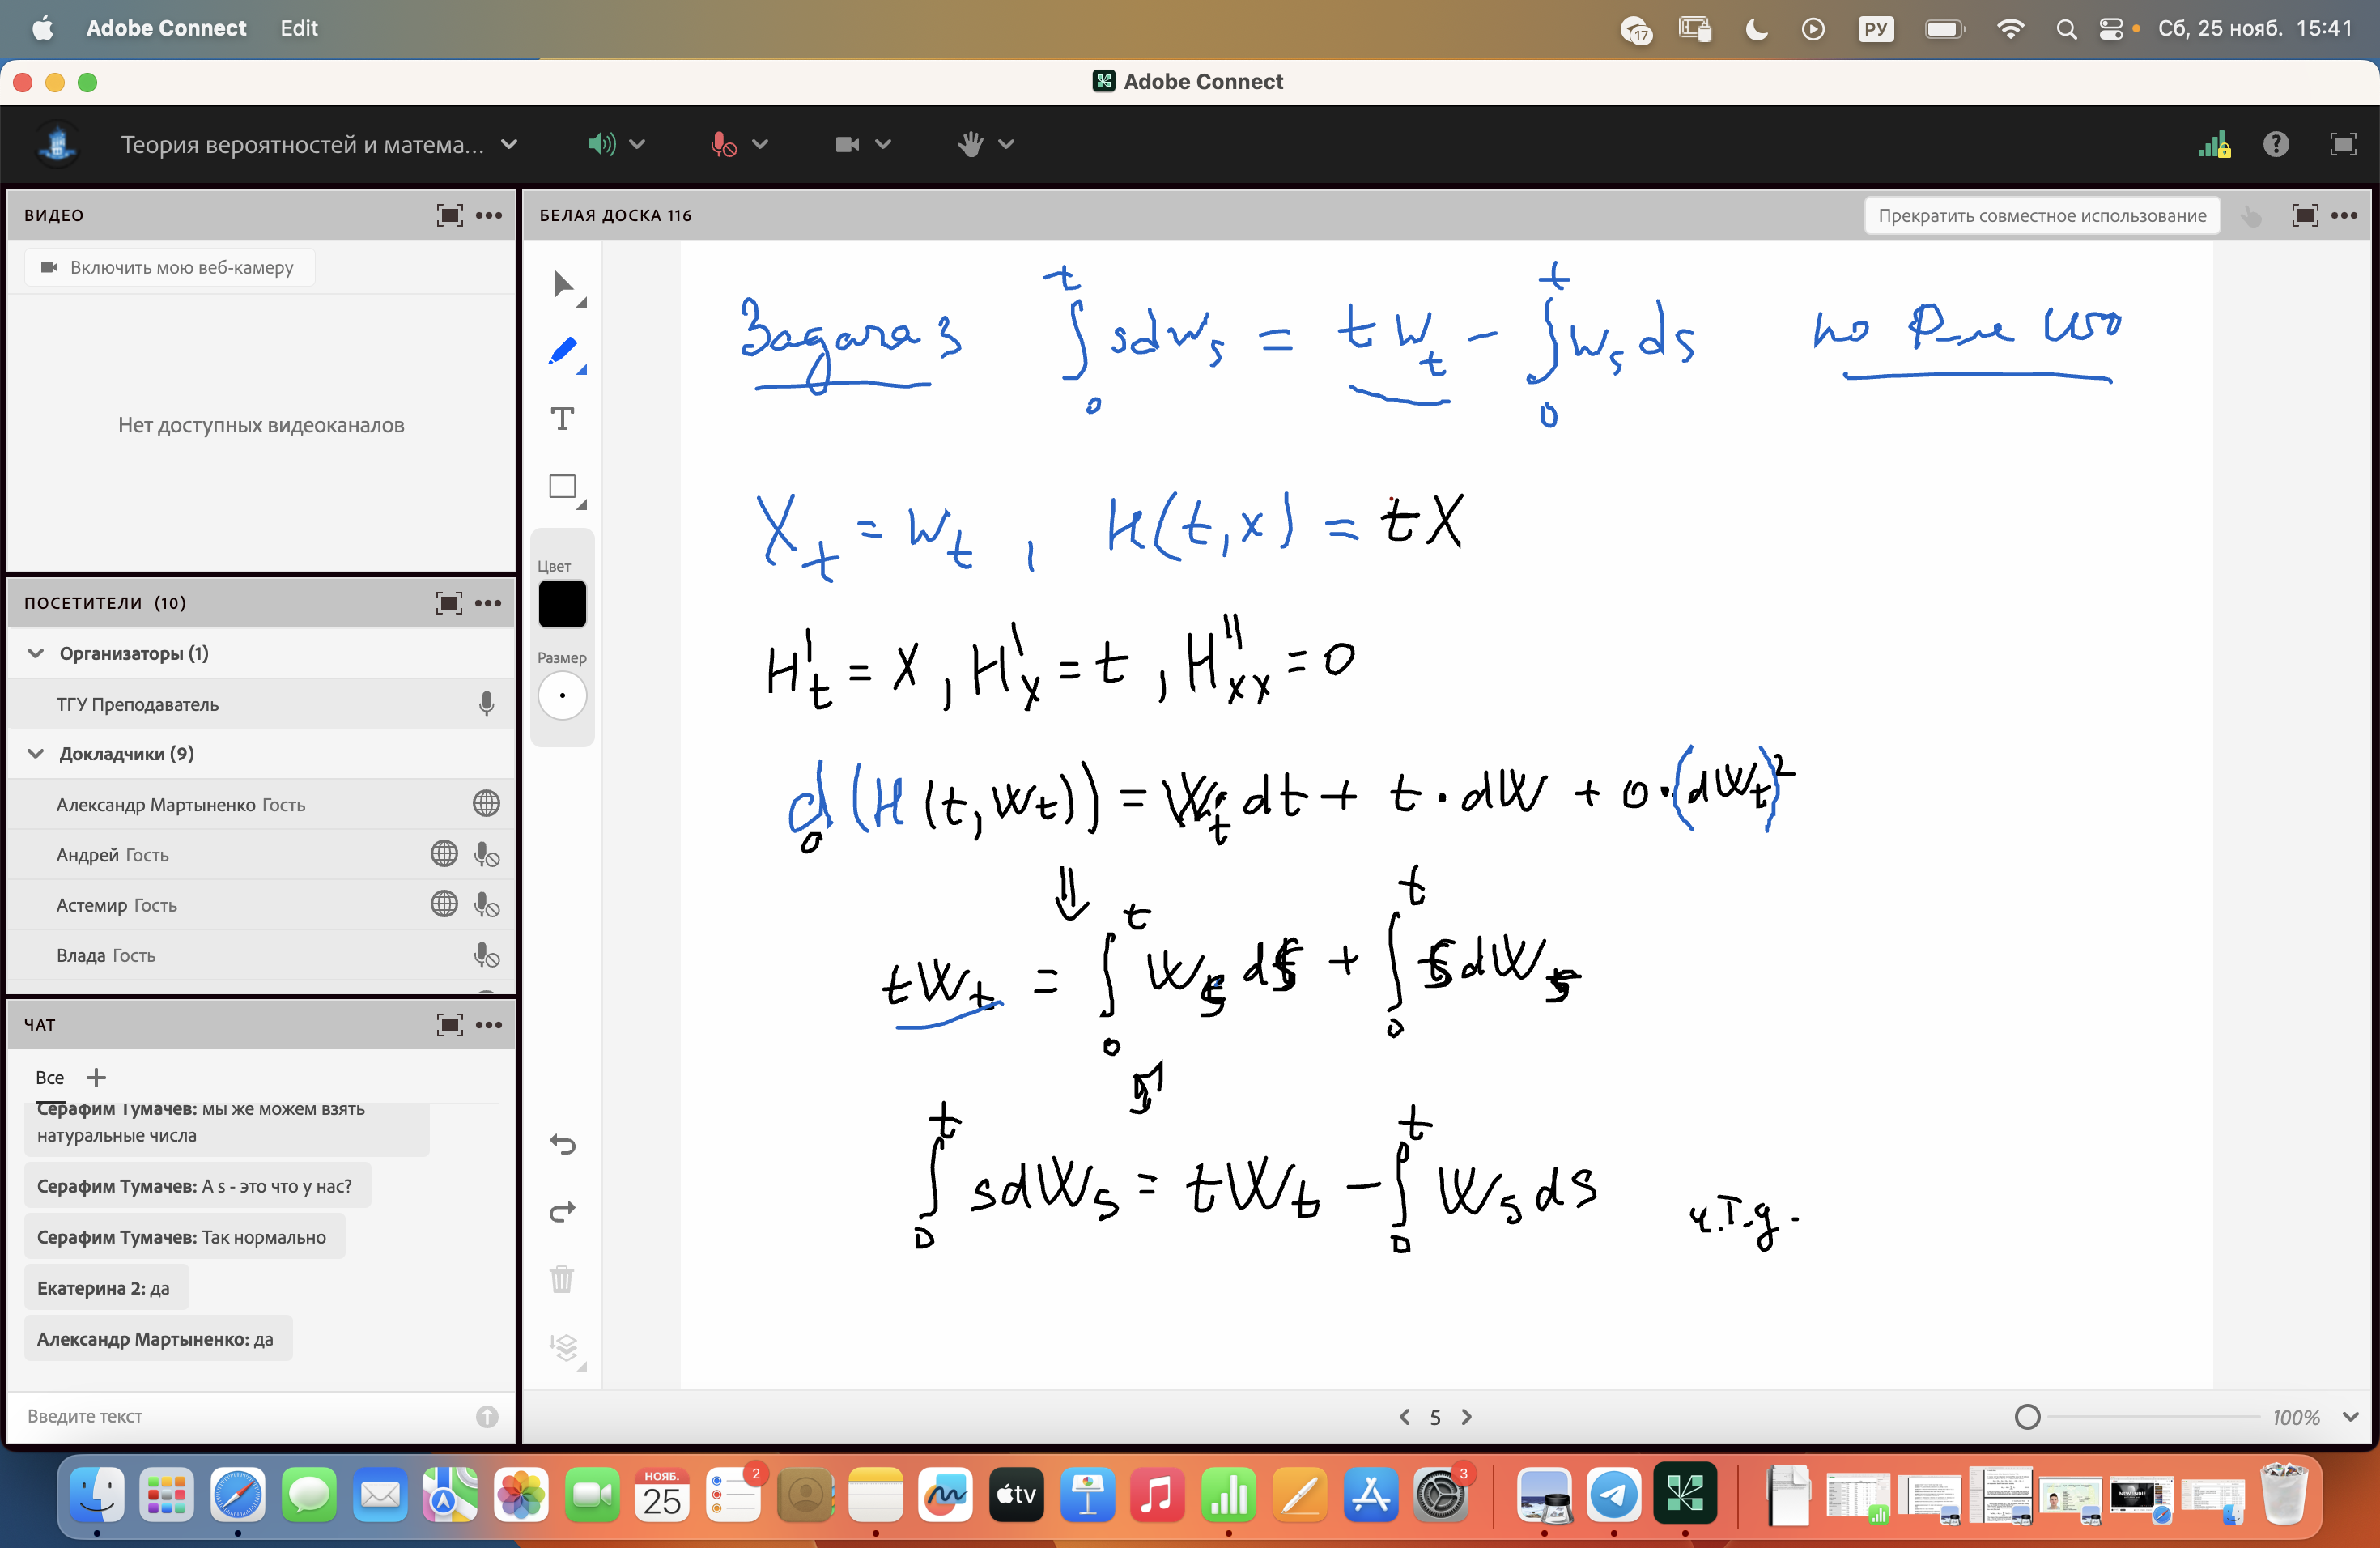 Adobe Connect Edit 17 РУ Сб, 25 нояб. 15:41
Adobe Connect
Теория вероятностей и матема...
ВИДЕО
Включить мою веб-камеру
Нет доступных видеоканалов
ПОСЕТИТЕЛИ (10)
Организаторы (1)
ТГУ Преподаватель
Докладчики (9)
Александр Мартыненко Гость
Андрей Гость
Астемир Гость
Влада Гость
ЧАТ
Все
Серафим Тумачев: мы же можем взять
натуральные числа
Серафим Тумачев: А s - это что у нас?
Серафим Тумачев: Так нормально
Екатерина 2: да
Александр Мартыненко: да
Введите текст
БЕЛАЯ ДОСКА 116
Прекратить совместное использование
Цвет
Размер
Задача 3 ∫₀ᵗ sdWₛ = tWₜ - ∫₀ᵗ Wₛds по ф-ле Ито
Xₜ = Wₜ, H(t,x) = tX
H'ₜ = X, H'ₓ = t, H''ₓₓ = 0
d(H(t,Wₜ)) = Wₜdt + t·dW + 0·(dWₜ)²
⇓
tWₜ = ∫₀ᵗ Wₛds + ∫₀ᵗ sdWₛ
∫₀ᵗ sdWₛ = tWₜ - ∫₀ᵗ Wₛds ч.т.д.
5
100%
НОЯБ.
25
2
tv
3